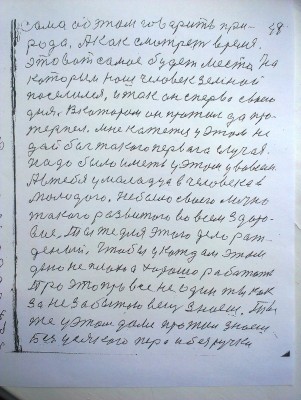 сама об этом говорить при- 38
рода. А как смотрет время.
Это вот самое будет места, На
котором наш человек земной
поселился, и так он сперво свого
дня. В котором он прожил да про
терпел. Мне кажетца у этом не
дай бы такого перваго случая.
Надо было иметь у этом у вовсем.
А в тебя у молодуя в человека в
молодого. Небыло свого лично
такого развитого во всем здоро-
вие. Ты же для этого дело рож-
деный, Чтобы у каждом этом
дено не плоха а хорошо работать
Про это про все не один ты как
за незабытою вещ знаем. Ты
же у этом дали прожил знаем
Без усякого пера и без ручки